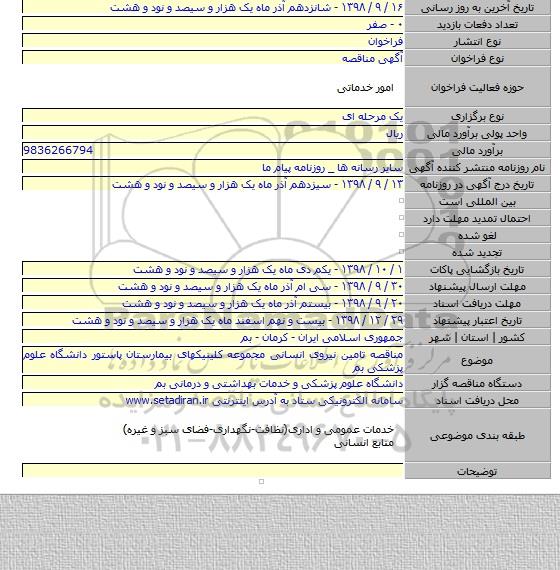 تاریخ آخرین به روز رسانی ۱۶ / ۹ / ۱۳۹۸ - شانزدهم آذر ماه یک هزار و سیصد و نود و هشت
تعداد دفعات بازدید ۰ - صفر
نوع انتشار فراخوان
نوع فراخوان آگهی مناقصه
حوزه فعالیت فراخوان امور خدماتی
نوع برگزاری یک مرحله ای
واحد پولی برآورد مالی ریال
برآورد مالی 9836266794
نام روزنامه منتشر کننده آگهی سایر رسانه ها _ روزنامه پیام ما
تاریخ درج آگهی در روزنامه ۱۳ / ۹ / ۱۳۹۸ - سیزدهم آذر ماه یک هزار و سیصد و نود و هشت
بین المللی است
احتمال تمدید مهلت دارد
لغو شده
تجدید شده
تاریخ بازگشایی پاکات ۱ / ۱۰ / ۱۳۹۸ - یکم دی ماه یک هزار و سیصد و نود و هشت
مهلت ارسال پیشنهاد ۳۰ / ۹ / ۱۳۹۸ - سی ام آذر ماه یک هزار و سیصد و نود و هشت
مهلت دریافت اسناد ۲۰ / ۹ / ۱۳۹۸ - بیستم آذر ماه یک هزار و سیصد و نود و هشت
تاریخ اعتبار پیشنهاد ۲۹ / ۱۲ / ۱۳۹۸ - بیست و نهم اسفند ماه یک هزار و سیصد و نود و هشت
کشور | استان | شهر جمهوری اسلامی ایران - کرمان - بم
موضوع مناقصه تامین نیروی انسانی مجموعه کلینیکهای بیمارستان پاستور دانشگاه علوم
پزشکی بم
دستگاه مناقصه گزار دانشگاه علوم پزشکی و خدمات بهداشتی و درمانی بم
محل دریافت اسناد سامانه الکترونیکی ستاد به آدرس اینترنتی www.setadiran.ir
طبقه بندی موضوعی خدمات عمومی و اداری(نظافت-نگهداری-فضای سبز و غیره)
منابع انسانی
توضیحات